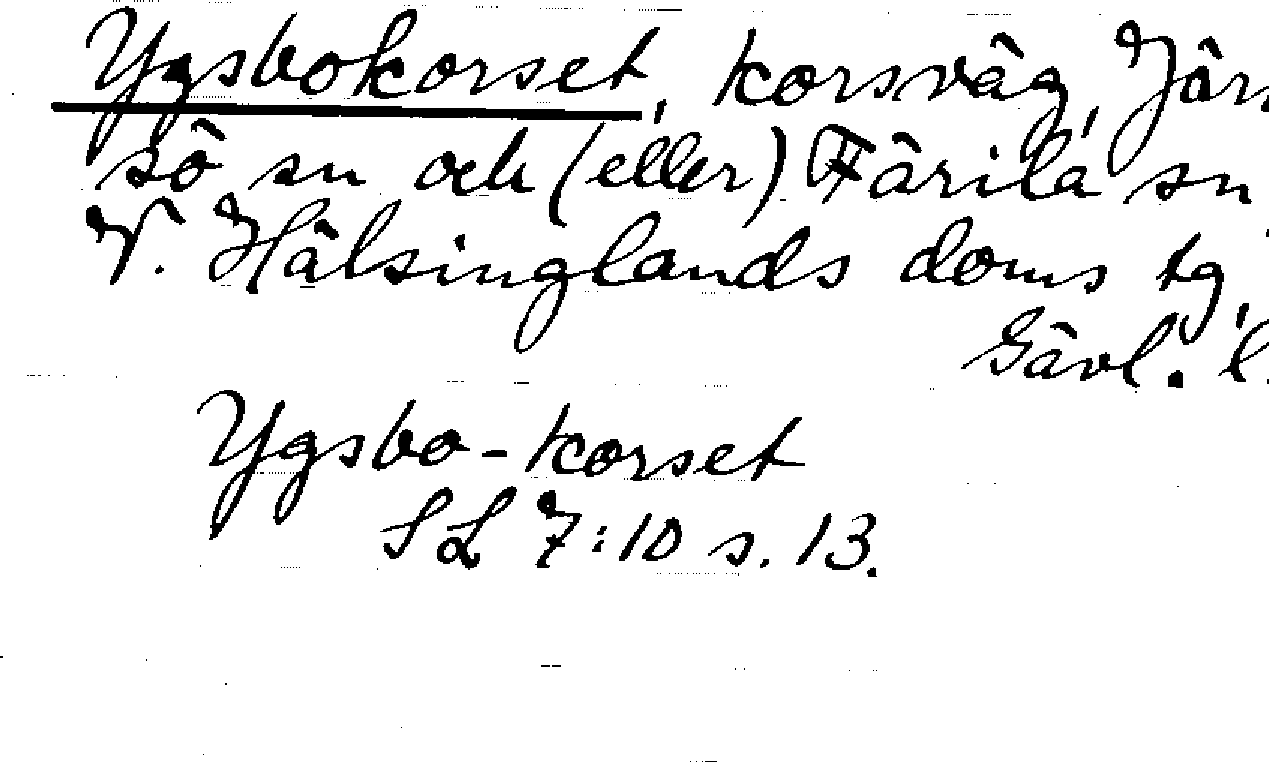 Ygsbokorset, korsväg, Järv
sö sn och (eller) Färila sn
V. Hälsinglands doms tg,
Gävl. l.
Ygsbo-korset
SL 7:10 s. 13.